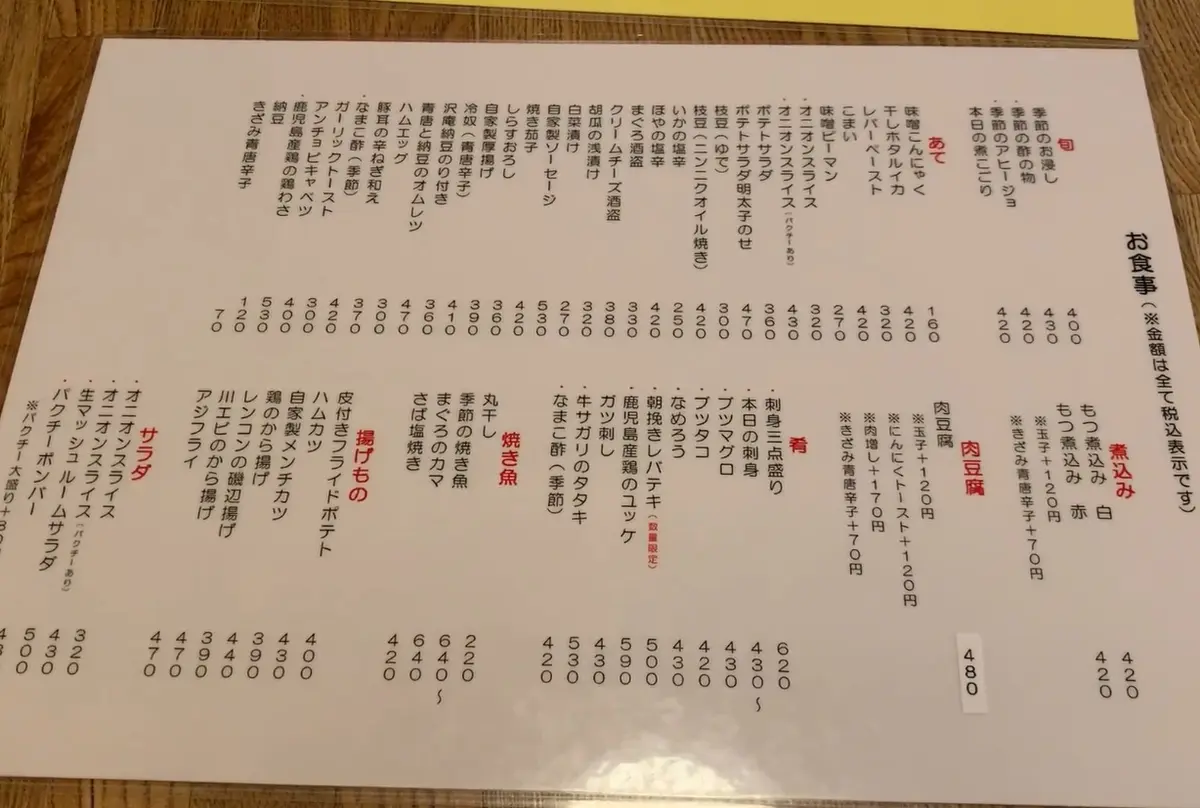 お食事（※金額は全て税込表示です）
旬
季節のお浸し 400
・季節の酢の物 430
・季節のアヒージョ 420
本日の煮こごり 420
あて
味噌こんにゃく 160
干しホタルイカ 420
レバーペースト 320
こまい 420
味噌ピーマン 270
・オニオンスライス 320
・オニオンスライス（パクチーあり） 430
ポテトサラダ 360
ポテトサラダ明太子のせ 470
枝豆（ゆで） 300
枝豆（ニンニクオイル焼き） 420
いかの塩辛 250
ほやの塩辛 420
まぐろ酒盗 330
クリームチーズ酒盗 380
胡瓜の浅漬け 320
白菜漬け 270
自家製ソーセージ 530
焼き茄子 420
しらすおろし 360
自家製厚揚げ 390
冷奴（青唐辛子） 410
沢庵納豆のり付き 360
青唐と納豆のオムレツ 470
ハムエッグ 300
豚耳の辛ねぎ和え 370
・なまこ酢（季節） 420
ガーリックトースト 300
アンチョビキャベツ 400
・鹿児島産鶏の鶏わさ 530
納豆 120
きざみ青唐辛子 70
煮込み
もつ煮込み 白 420
もつ煮込み 赤 420
※玉子＋120円
※きざみ青唐辛子＋70円
肉豆腐
肉豆腐 480
※玉子＋120円
※にんにくトースト＋120円
※肉増し＋170円
※きざみ青唐辛子＋70円
肴
・刺身三点盛り 620
・本日の刺身 430～
・ブツマグロ 430
・ブツタコ 420
・なめろう 430
・朝挽きレバテキ（数量限定） 500
・鹿児島産鶏のユッケ 590
・ガツ刺し 430
・牛サガリのタタキ 530
・なまこ酢（季節） 420
焼き魚
丸干し 220
季節の焼き魚 640～
まぐろのカマ 640
さば塩焼き 420
揚げもの
皮付きフライドポテト 400
ハムカツ 430
自家製メンチカツ 390
鶏のから揚げ 440
レンコンの磯辺揚げ 390
川エビのから揚げ 470
アジフライ 470
サラダ
・オニオンスライス 320
・オニオンスライス（パクチーあり） 430
・生マッシュルームサラダ 500
・パクチーボンバー
※パクチー大盛り＋80